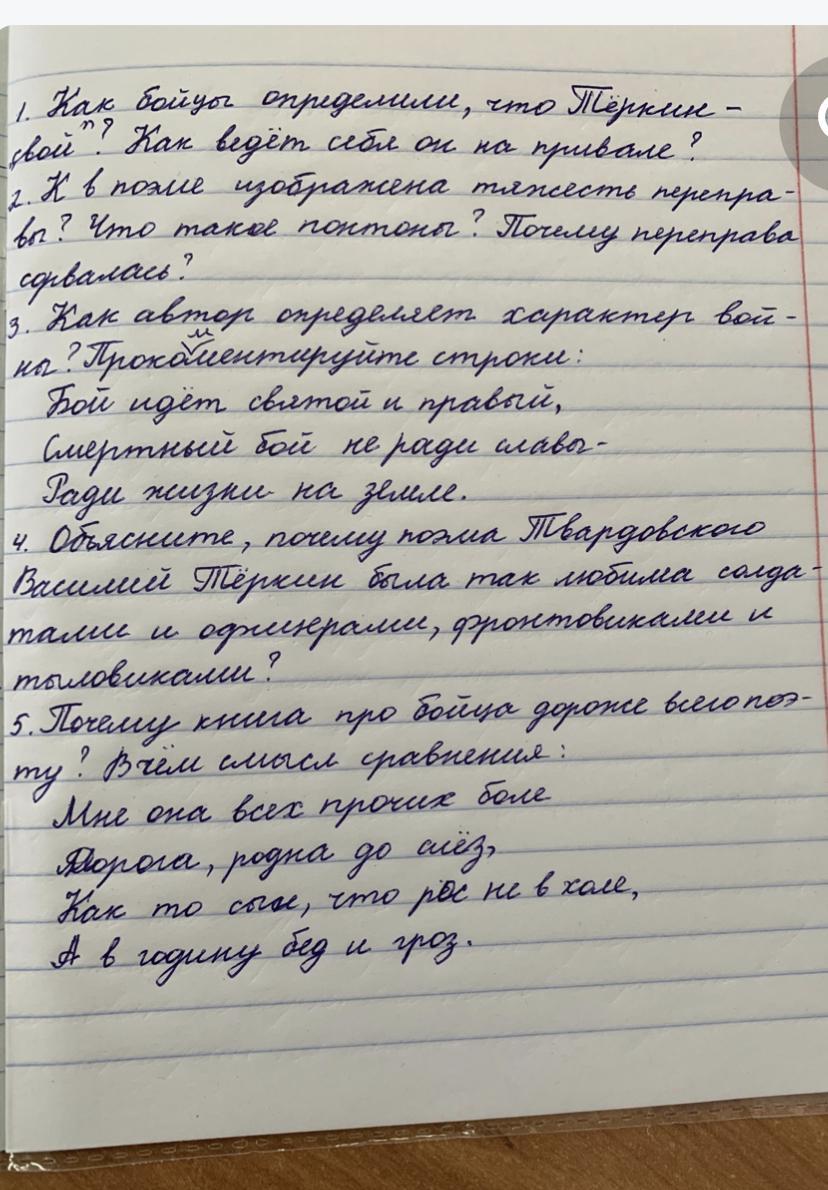 1. Как бойцы определили, что Тёркин -
свой"? Как ведёт себя он на привале?
2. К в поэме изображена тяжесть перепра-
вы? Что такое понтоны? Почему переправа
сорвалась?
3. Как автор определяет характер вой-
ны? Прокомментируйте строки:
Бой идёт святой и правый,
Смертный бой не ради славы-
Ради жизни на земле.
4. Объясните, почему поэма Твардовского
Василий Тёркин была так любима солда-
тами и офицерами, фронтовиками и
тыловиками?
5. Почему книга про бойца дороже всего поэ-
ту? В чём смысл сравнения:
Мне она всех прочих боле
Дорога, родна до слёз,
Как то сын, что рос не в холе,
А в годину бед и гроз.